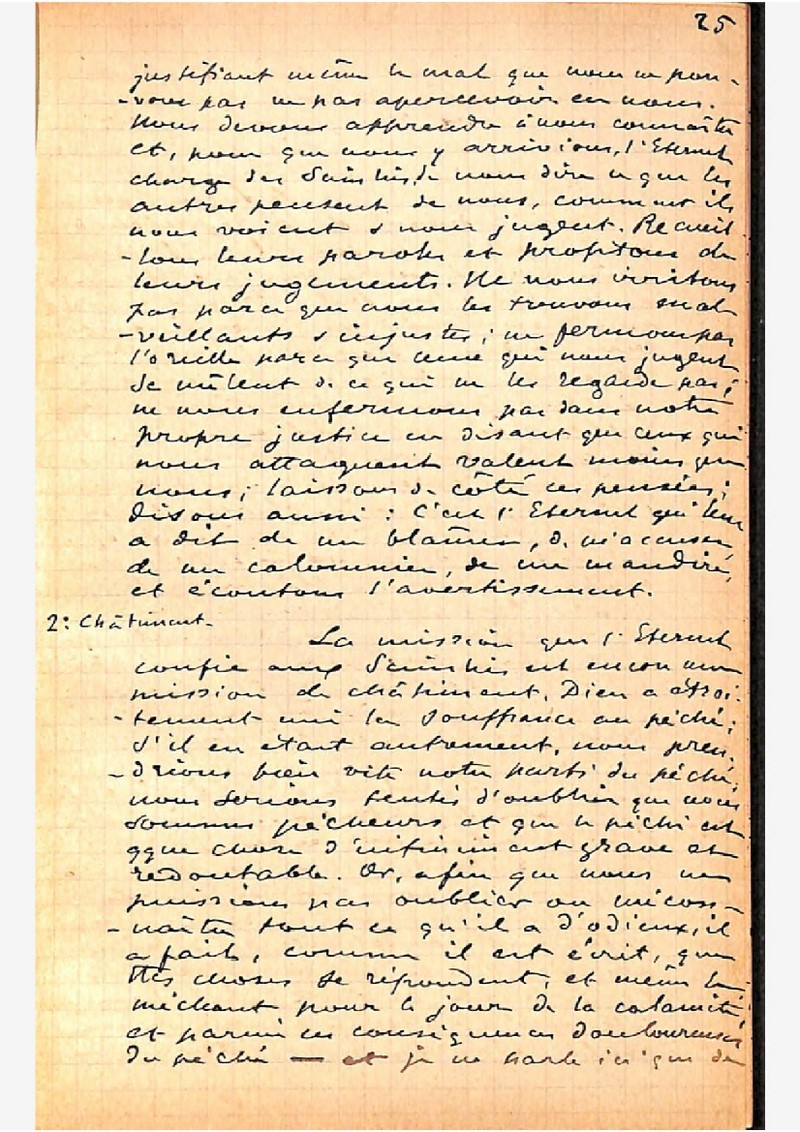 25
justifiant même le mal que nous ne pou-
-vons pas ne pas apercevoir en nous.
Nous devons apprendre à nous connaître
et, pour que nous y arrivions, l'Eternel
charge des Schimhis de nous dire ce que les
autres pensent de nous, comment ils
nous voient & nous jugent. Recueil-
-lons leurs paroles et profitons de
leurs jugements. Ne nous irritons
pas parce que nous les trouvons mal-
-veillants & injustes; ne fermons pas
l'oreille parce que ceux qui nous jugent
se mêlent de ce qui ne les regarde pas;
ne nous enfermons pas dans notre
propre justice en disant que ceux qui
nous attaquent valent moins que
nous; laissons de côté ces pensées;
disons aussi: C'est l'Eternel qui leur
a dit de me blâmer, de m'accuser,
de me calomnier, de me maudire,
et écoutons l'avertissement.
2: Châtiment-
La mission que l'Eternel
confie aux Schimhis est encore une
mission de châtiment. Dieu a étroi-
-tement uni la souffrance au péché;
s'il en était autrement, nous pren-
-drions bien vite notre parti du péché,
nous serions tentés d'oublier que nous
sommes pécheurs et que le péché est
qque chose d'infiniment grave et
redoutable. Or, afin que nous ne
puissions pas oublier ou mécon-
-naître tout ce qu'il a d'odieux, il
a fait, comme il est écrit, que
ttes choses se répondent, et même le
méchant pour le jour de la calamité
et parmi ces conséquences douloureuses
du péché — et je ne parle ici que de